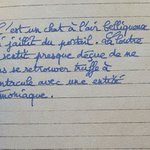 C'est un chat à l'air belliqueux
jaillit du portail. La loutre
sentit presque déçue de ne
us se retrouver truffe à
ntacule avec une entité
moniaque.